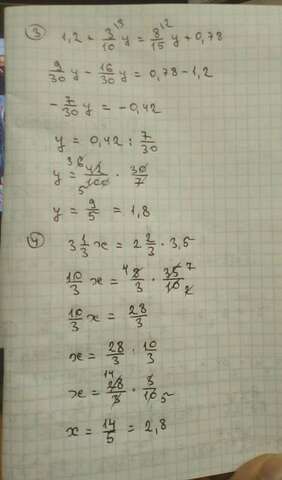 ③ 1,2 + 3/10 y = 8/15 y + 0,78
9/30 y - 16/30 y = 0,78 - 1,2
- 7/30 y = - 0,42
y = 0,42 : 7/30
y = 42/100 · 30/7
y = 9/5 = 1,8
④ 3 1/3 x = 2 2/3 · 3,5
10/3 x = 8/3 · 35/10
10/3 x = 28/3
x = 28/3 · 10/3
x = 28/3 · 3/10
x = 14/5 = 2,8